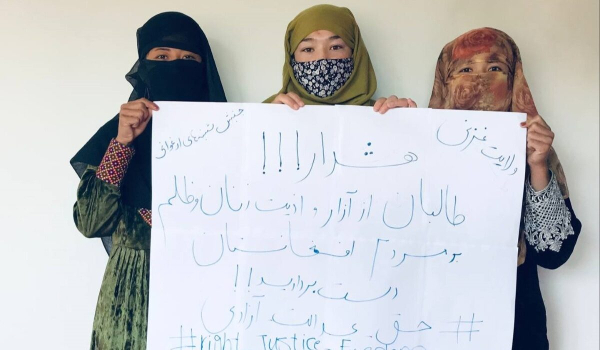 ولایت غزنی
جنبش شنبه‌های ارغوانی
هشدار!!!
طالبان از آزار و اذیت زنان و ظلم
بر مردم افغانستان
دست بردارید!!
# حق عدالت آزادی
#right Justice Freedom